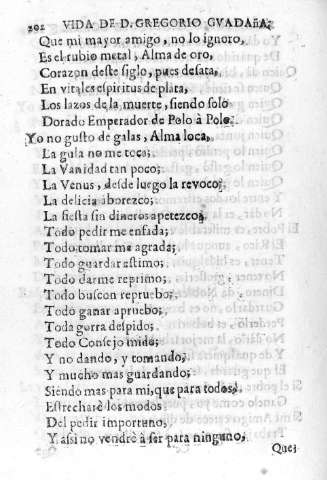 202 VIDA DE D. GREGORIO GVADAñA,
Que mi mayor amigo, no lo ignoro,
Es el rubio metal, Alma de oro,
Corazon deste siglo, pues desata,
En vitales espiritus de plata,
Los lazos de la muerte, siendo solo
Dorado Emperador de Polo à Polo.
Yo no gusto de galas, Alma loca,
La gula no me toca;
La Vanidad tan poco;
La Venus, desde luego la revoco;
La delicia aborezco;
La fiesta sin dineros apetezco;
Todo pedir me enfada;
Todo tomar me agrada;
Todo guardar estimo;
Todo darme reprimo;
Todo buscon repruebo;
Todo ganar apruebo;
Toda gorra despido;
Todo Consejo mido;
Y no dando, y tomando;
Y mucho mas guardando;
Siendo mas para mi, que para todos;
Estrecharè los modos
Del pedir importuno;
Y assi no vendrè à ser para ninguno;
Que;